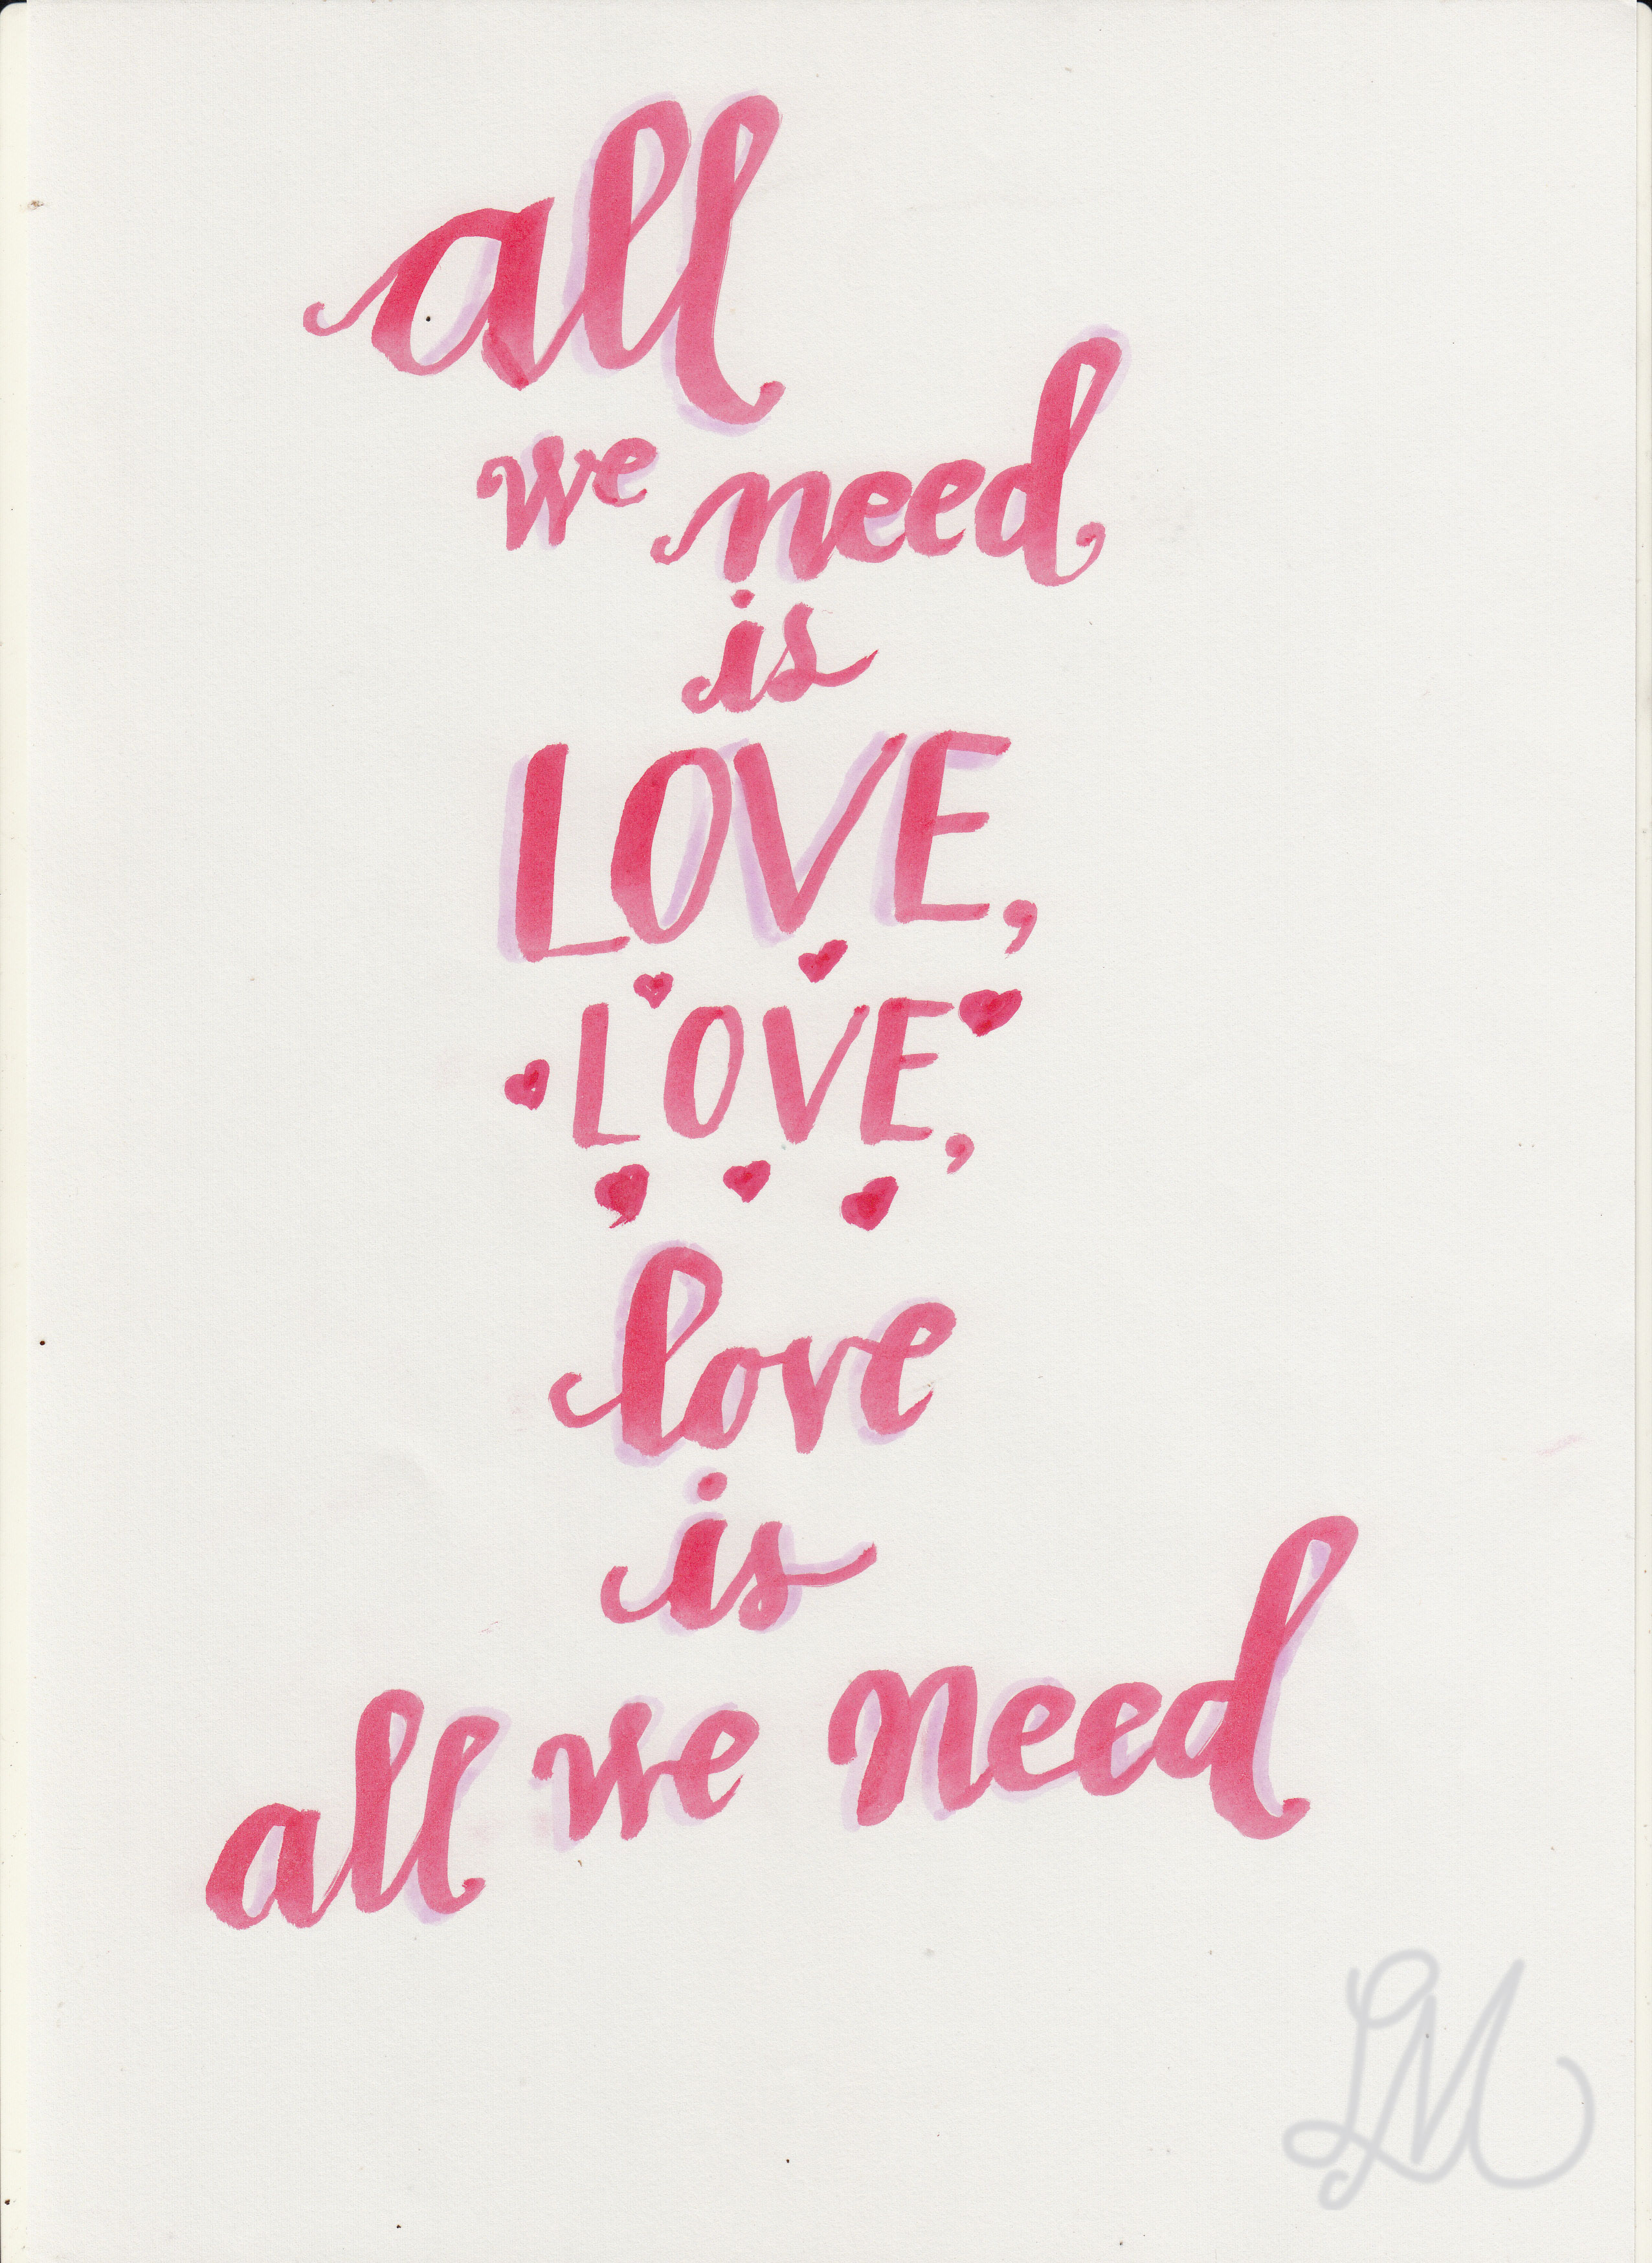 all
we need
is
LOVE,
LOVE,
love
is
all we need
LM